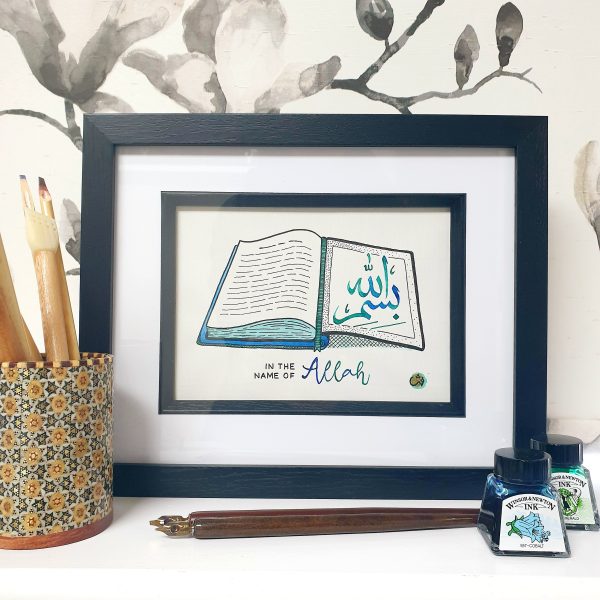 بسم الله
IN THE
NAME OF Allah
WINSOR & NEWTON
INK
WINSOR & NEWTON
INK